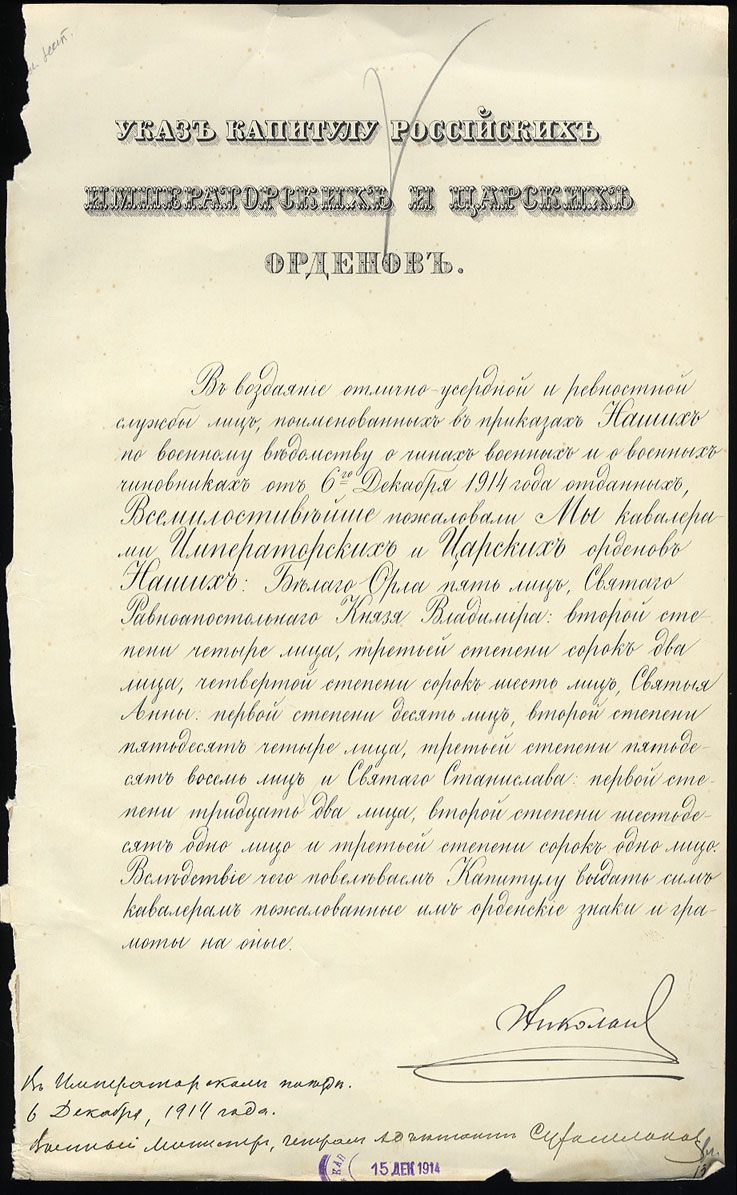 УКАЗЪ КАПИТУЛУ РОССІЙСКИХЪ
ИМПЕРАТОРСКИХЪ И ЦАРСКИХЪ
ОРДЕНОВЪ.
Въ воздаяніе отлично-усердной и ревностной
службы лицъ, поименованныхъ въ приказахъ Нашихъ
по военному вѣдомству о чинахъ военныхъ и о военныхъ
чиновникахъ отъ 6го Декабря 1914 года отданныхъ,
Всемилостивѣйше пожаловали Мы кавалера-
ми Императорскихъ и Царскихъ орденовъ
Нашихъ: Бѣлаго Орла пять лицъ, Святаго
Равноапостольнаго Князя Владиміра: второй сте-
пени четыре лица, третьей степени сорокъ два
лица, четвертой степени сорокъ шесть лицъ, Святыя
Анны: первой степени десять лицъ, второй степени
пятьдесятъ четыре лица, третьей степени пятьде-
сятъ восемь лицъ и Святаго Станислава: первой сте-
пени тридцать два лица, второй степени шестьде-
сятъ одно лицо и третьей степени сорокъ одно лицо.
Вслѣдствіе чего повелѣваемъ Капитулу выдать симъ
кавалерамъ пожалованные имъ орденскіе знаки и гра-
моты на оные.
Николай
Въ Императорскомъ поѣздѣ.
6 Декабря, 1914 года.
Военный Министръ, генералъ адъютантъ Сухомлиновъ
КАП 15 ДЕК 1914